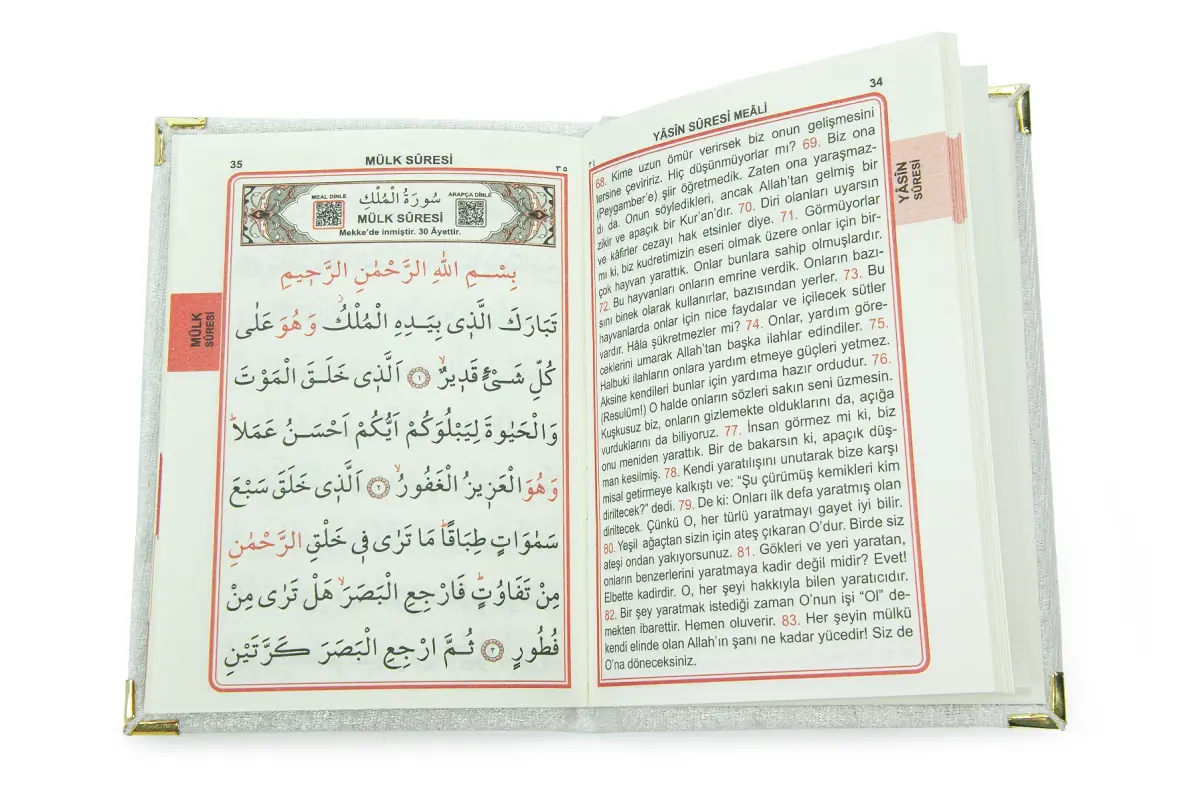 34
YÂSÎN SÛRESİ MEÂLİ
68. Kime uzun ömür verirsek biz onun gelişmesini
tersine çeviririz. Hiç düşünmüyorlar mı? 69. Biz ona
(Peygamber'e) şiir öğretmedik. Zaten ona yaraşmaz-
dı da. Onun söyledikleri, ancak Allah'tan gelmiş bir
zikir ve apaçık bir Kur'an'dır. 70. Diri olanları uyarsın
ve kâfirler cezayı hak etsinler diye. 71. Görmüyorlar
mı ki, biz kudretimizin eseri olmak üzere onlar için bir-
çok hayvan yarattık. Onlar bunlara sahip olmuşlardır.
72. Bu hayvanları onların emrine verdik. Onların bazı-
sını binek olarak kullanırlar, bazısından yerler. 73. Bu
hayvanlarda onlar için nice faydalar ve içilecek sütler
vardır. Hâla şükretmezler mi? 74. Onlar, yardım göre-
ceklerini umarak Allah'tan başka ilahlar edindiler. 75.
Halbuki ilahların onlara yardım etmeye güçleri yetmez.
Aksine kendileri bunlar için yardıma hazır ordudur. 76.
(Resulüm!) O halde onların sözleri sakın seni üzmesin.
Kuşkusuz biz, onların gizlemekte olduklarını da, açığa
vurduklarını da biliyoruz. 77. İnsan görmez mi ki, biz
onu meniden yarattık. Bir de bakarsın ki, apaçık düş-
man kesilmiş. 78. Kendi yaratılışını unutarak bize karşı
misal getirmeye kalkıştı ve: "Şu çürümüş kemikleri kim
diriltecek?" dedi. 79. De ki: Onları ilk defa yaratmış olan
diriltecek. Çünkü O, her türlü yaratmayı gayet iyi bilir.
80. Yeşil ağaçtan sizin için ateş çıkaran O'dur. Birde siz
ateşi ondan yakıyorsunuz. 81. Gökleri ve yeri yaratan,
onların benzerlerini yaratmaya kadir değil midir? Evet!
Elbette kadirdir. O, her şeyi hakkıyla bilen yaratıcıdır.
82. Bir şey yaratmak istediği zaman O'nun işi "Ol" de-
mekten ibarettir. Hemen oluverir. 83. Her şeyin mülkü
kendi elinde olan Allah'ın şanı ne kadar yücedir! Siz de
O'na döneceksiniz.
YÂSÎN
SÛRESİ
35 MÜLK SÛRESİ ٣٥
MEAL DİNLE سُورَةُ الْمُلْكِ ARAPÇA DİNLE
MÜLK SÛRESİ
Mekke'de inmiştir. 30 Âyettir.
بِسْمِ اللّٰهِ الرَّحْمٰنِ الرَّحٖيمِ
تَبَارَكَ الَّذٖى بِيَدِهِ الْمُلْكُۘ وَهُوَ عَلٰى
كُلِّ شَيْءٍ قَدٖيرٌۙ ١ اَلَّذٖى خَلَقَ الْمَوْتَ
وَالْحَيٰوةَ لِيَبْلُوَكُمْ اَيُّكُمْ اَحْسَنُ عَمَلاًؕ
وَهُوَ الْعَزٖيزُ الْغَفُورُۙ ٢ اَلَّذٖى خَلَقَ سَبْعَ
سَمٰوَاتٍ طِبَاقاًؕ مَا تَرٰى فٖى خَلْقِ الرَّحْمٰنِ
مِنْ تَفَاوُتٍؕ فَارْجِعِ الْبَصَرَۙ هَلْ تَرٰى مِنْ
فُطُورٍ ٣ ثُمَّ ارْجِعِ الْبَصَرَ كَرَّتَيْنِ
MÜLK
SÛRESİ